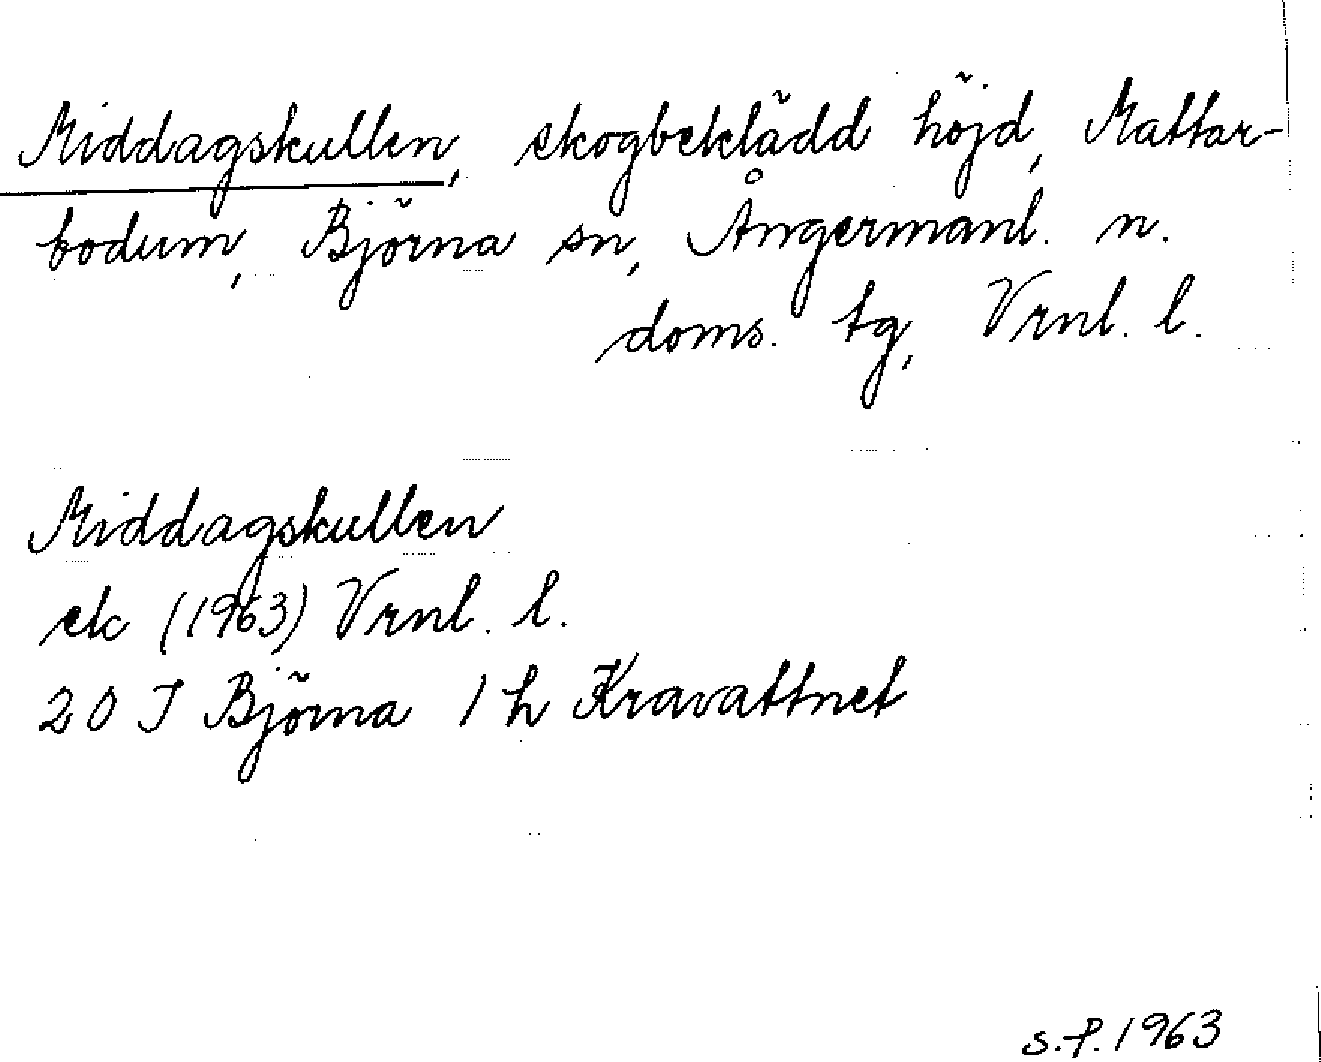 Middagskullen, skogbeklädd höjd, Mattar-
bodum, Björna sn, Ångermanl. n.
doms. tg, Vrnl. l.
Middagskullen
ek (1963) Vrnl. l.
20 J Björna 1 h Kravattnet
s.f. 1963